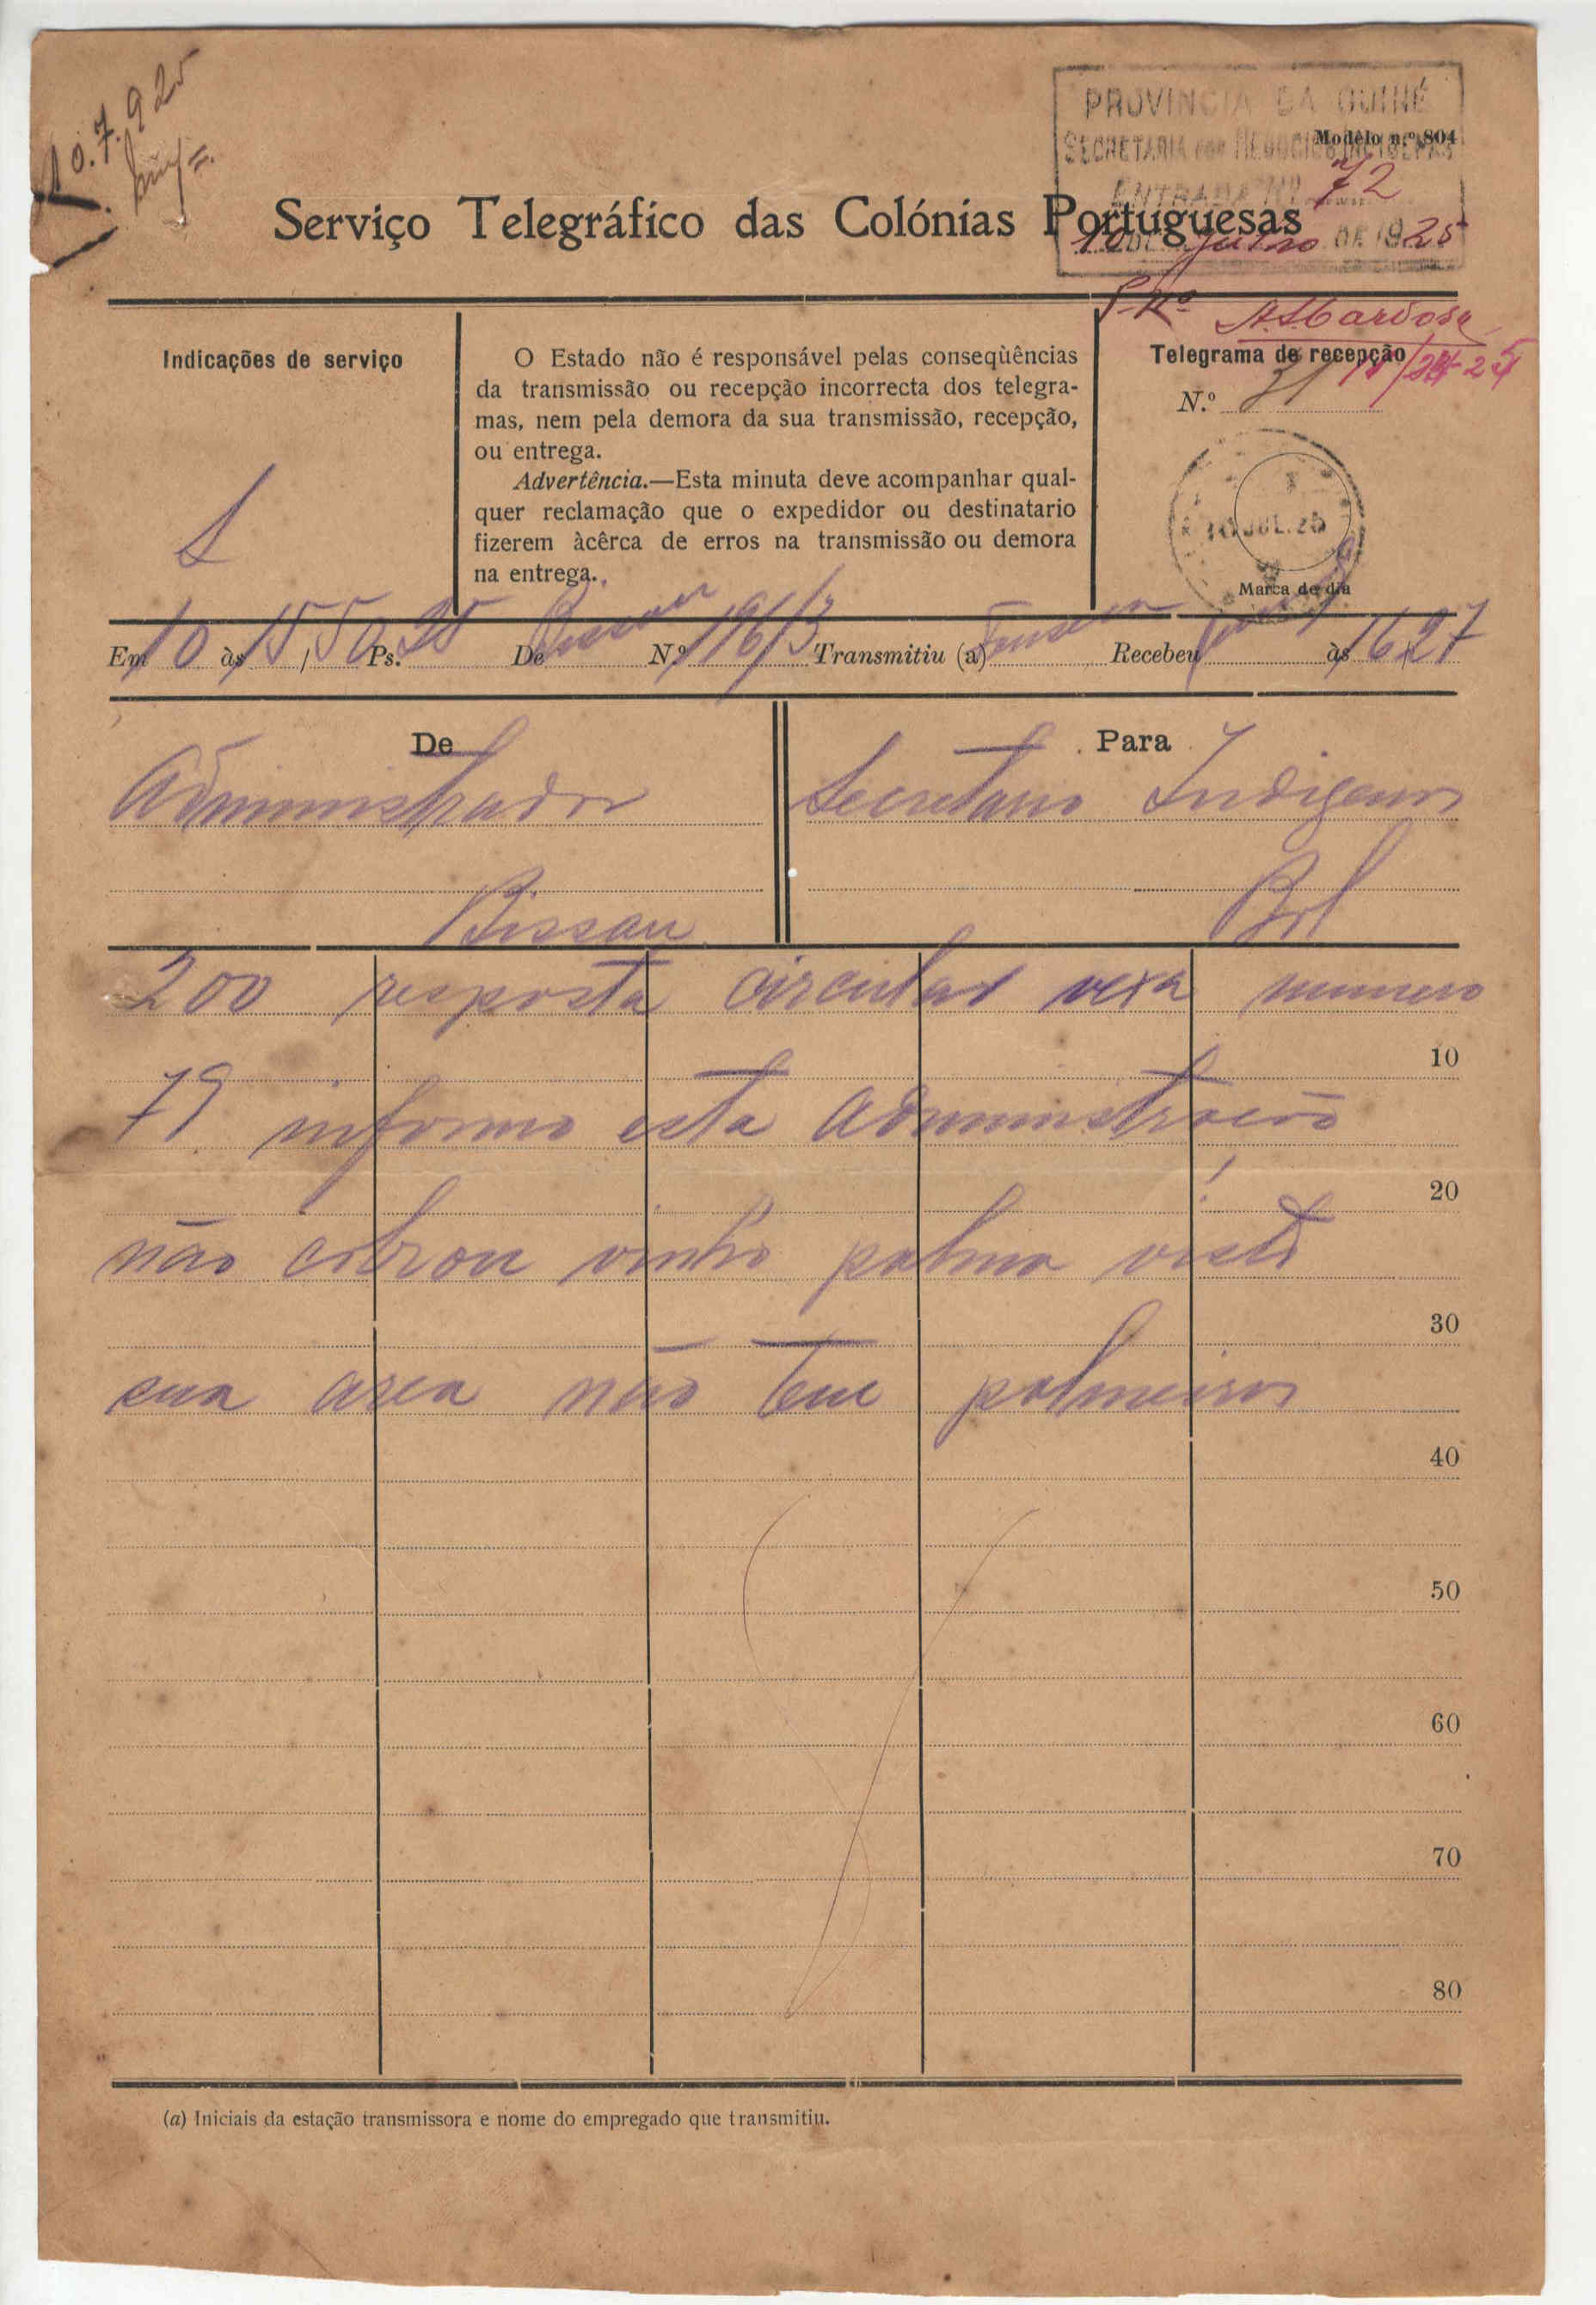 10.7.925
PROVINCIA DA GUINÉ
SECRETARIA DOS NEGOCIOS INDIGENAS
Modêlo n.º 804
ENTRADA Nº 72
10 DE Julho DE 1925
Serviço Telegráfico das Colónias Portuguesas
A. S. Cardoso
Indicações de serviço
S
O Estado não é responsável pelas conseqüências
da transmissão ou recepção incorrecta dos telegra-
mas, nem pela demora da sua transmissão, recepção,
ou entrega.
Advertência.—Esta minuta deve acompanhar qual-
quer reclamação que o expedidor ou destinatario
fizerem àcêrca de erros na transmissão ou demora
na entrega.
Telegrama de recepção
N.º 31
10 JUL. 25
Marca de dia
Em 10 às 15,50 Ps. 25 De Bissau Nº 196/3 Transmitiu (a) Recebeu às 16,27
De
Administrador
Bissau
Para
Secretario Indigenas
Bol
200 resposta circular vexa numero
10
79 informo esta Administracão
20
não cobrou vinho palma visto
30
sua area não tem palmeiras
40
50
60
70
80
(a) Iniciais da estação transmissora e nome do empregado que transmitiu.